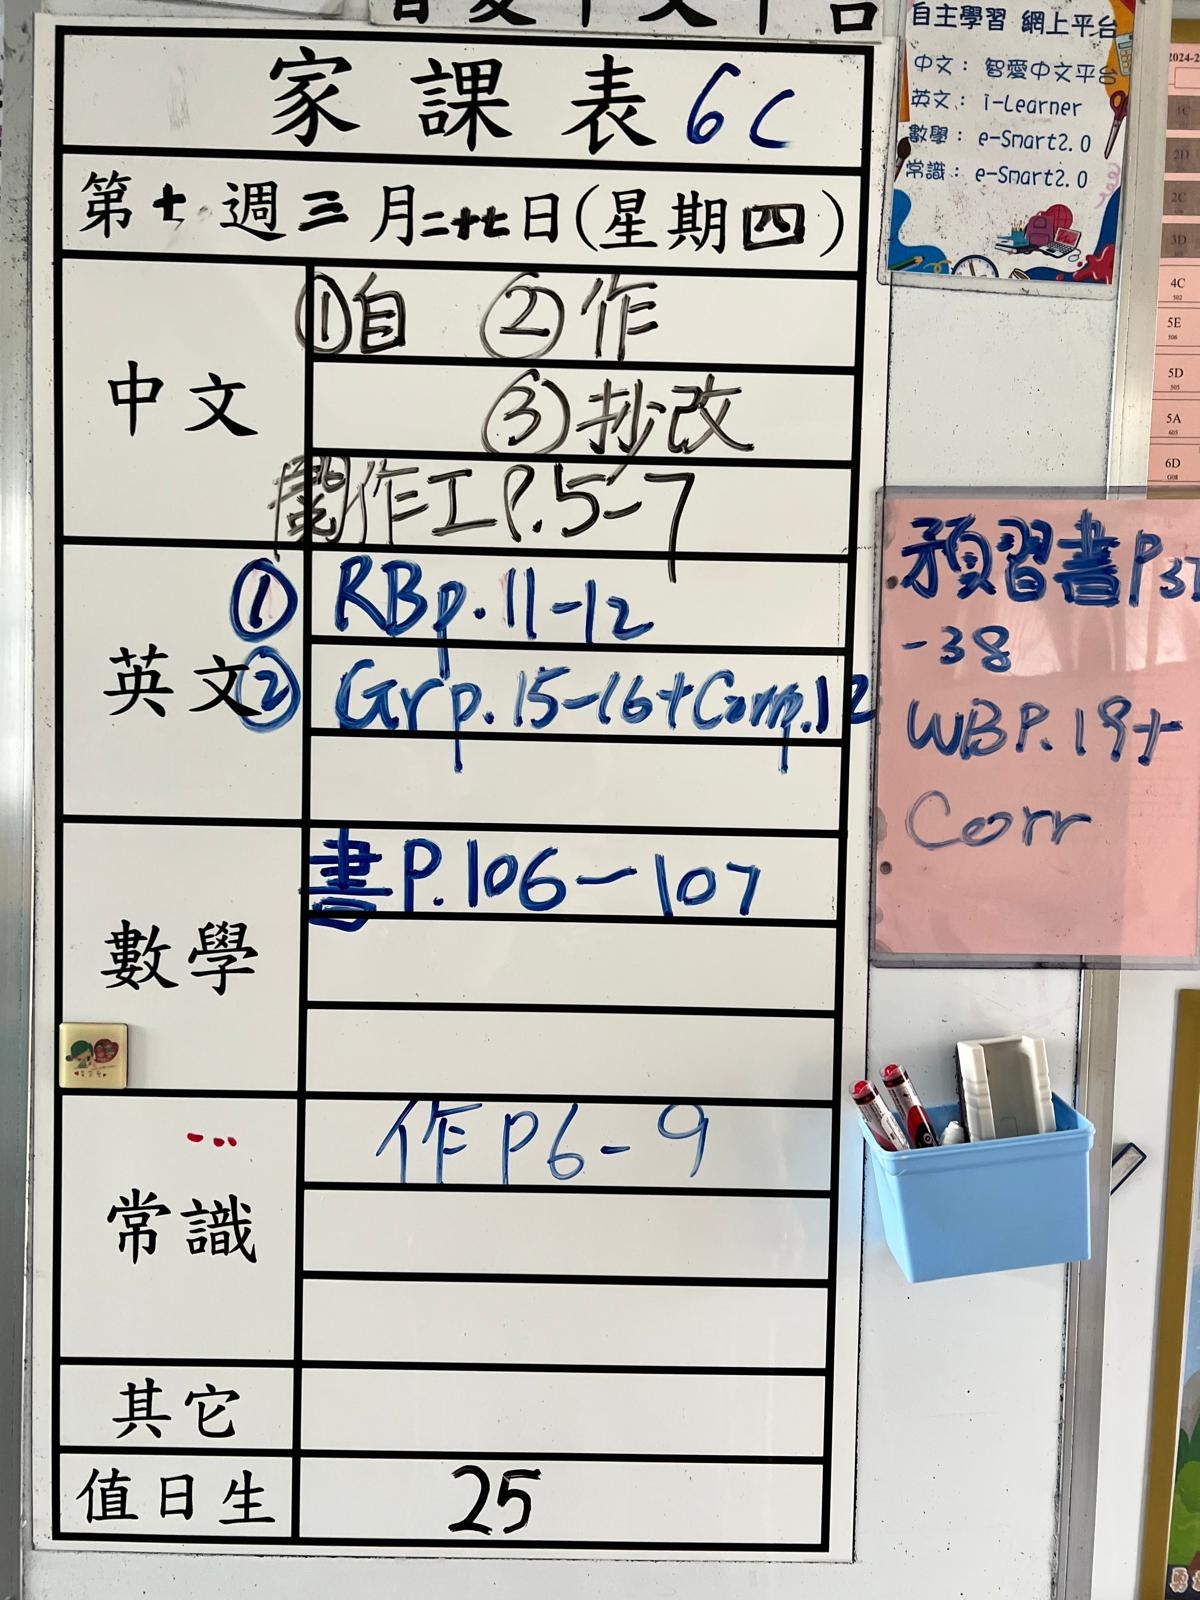 智愛中文平台
家課表 6C
第七週三月二十七日(星期四)
中文
①自 ②作
③抄改
閱作工P.5-7
英文
① RBp.11-12
② Grp.15-16+Comp.12
數學
書P.106-107
常識
作P6-9
其它
值日生
25
自主學習 網上平台
中文：智愛中文平台
英文：i-Learner
數學：e-Smart2.0
常識：e-Smart2.0
預習書P37
-38
WBP.19+
Corr
2024-2
1C
2D
2C
3D
4C
502
5E
506
5D
505
5A
605
6D
G08